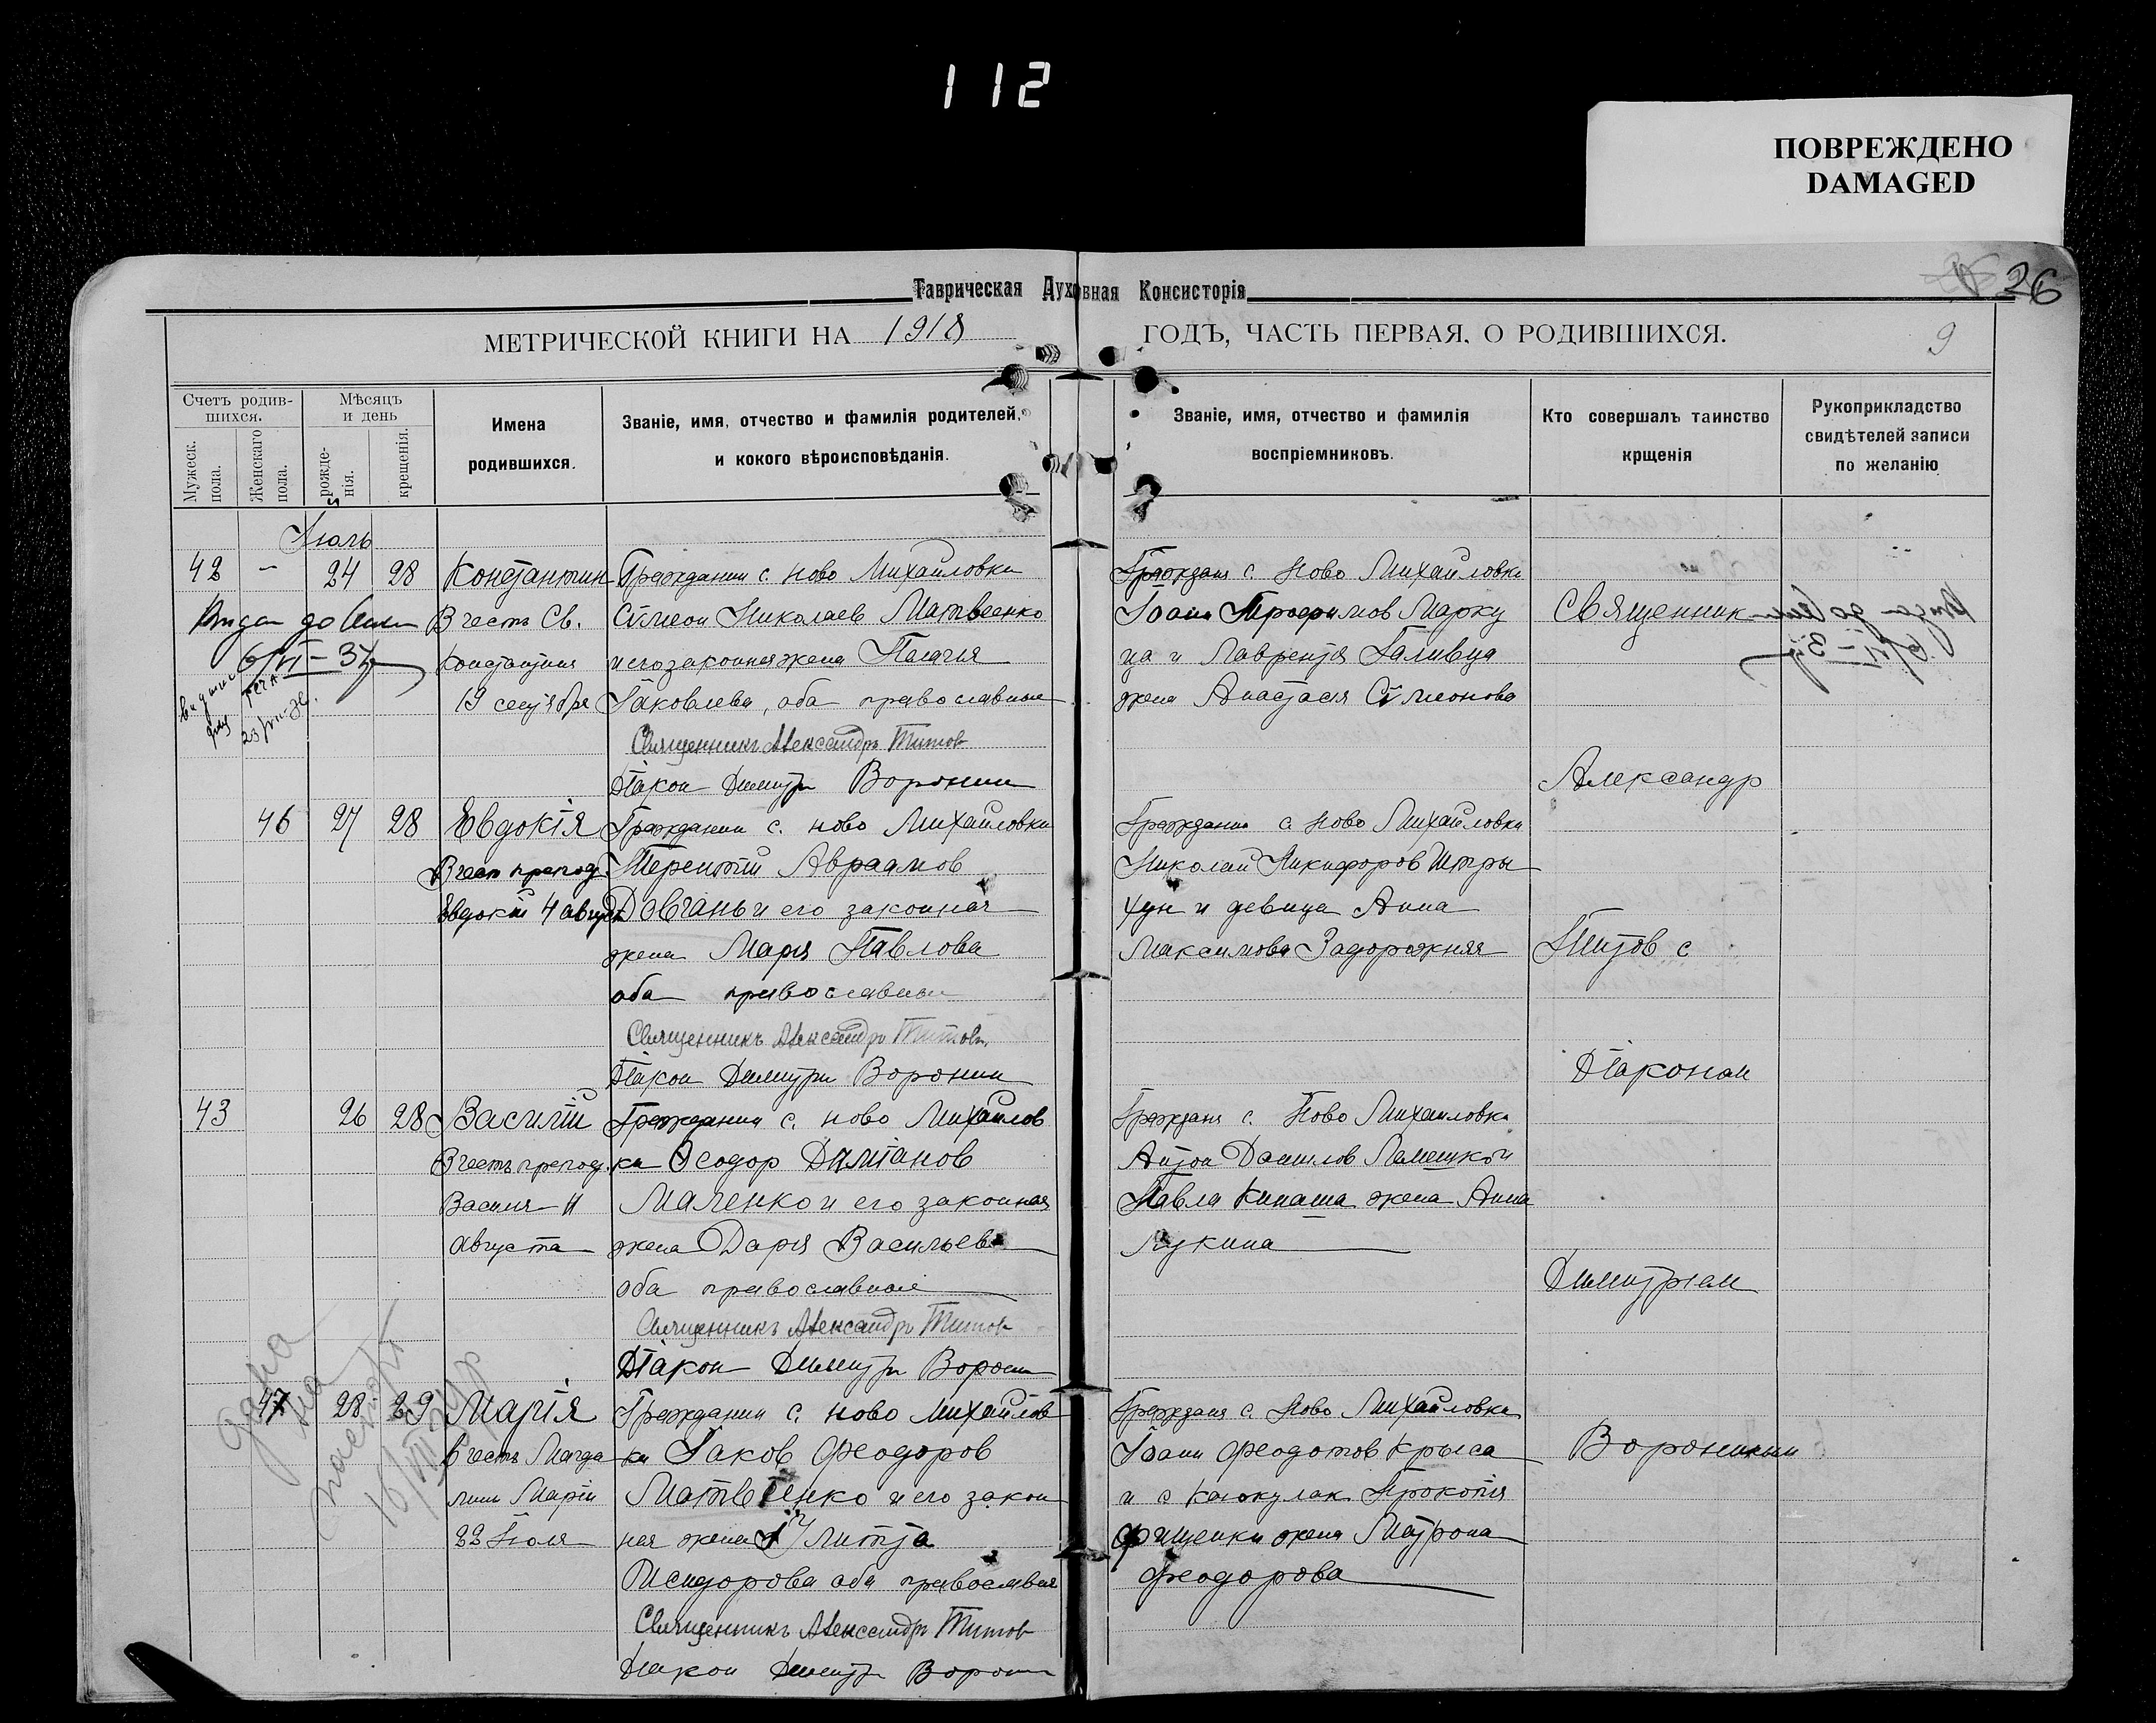 112
ПОВРЕЖДЕНО
DAMAGED
Таврическая Духовная Консисторія
26
МЕТРИЧЕСКОЙ КНИГИ НА 1918
ГОДЪ, ЧАСТЬ ПЕРВАЯ, О РОДИВШИХСЯ.
9
Счетъ родив-
шихся.
Мѣсяцъ
и день
Мужеск.
пола.
Женскаго
пола.
рожде-
нія.
крещенія.
Имена
родившихся.
Званіе, имя, отчество и фамилія родителей,
и кокого вѣроисповѣданія.
Званіе, имя, отчество и фамилія
воспріемниковъ.
Кто совершалъ таинство
крщенія
Рукоприкладство
свидѣтелей записи
по желанію
Іюль
42 - 24 28 Константин
В честь Св.
Константина
19 сентября
Гражданин с. Ново Михайловки
Сѵмеон Николаев Матвеенко
и его законная жена Пелагея
Іаковлева, оба православные
Священникъ Александръ Титовъ
Діакон Димитрій Воронин
Граждане с. Ново Михайловки
Іоанн Трофимов Марку
ца и Лаврентія Галивца
жена Анастасія Сѵмеонова
Священник
Александр
Титов с
Діаконом
Димитріем
Ворониным
46 27 28 Евдокія
В честь препод.
Евдокіи 4 август
Гражданин с. Ново Михайловки
Терентій Авраамов
Довгань и его законная
жена Марія Павлова
оба православные
Священникъ Александръ Титовъ
Діакон Димитрій Воронин
Гражданин с. Ново Михайловки
Николай Никифоров Штры
хун и девица Анна
Максимова Задорожняя
43 26 28 Василій
В честь препод.
Василія 11
августа
Гражданин с. Ново Михайлов
ки Ѳеодор Даміанов
Маленко и его законная
жена Дарія Васильева
оба православные
Священникъ Александръ Титовъ
Діакон Димитрій Воронин
Граждане с. Ново Михайловки
Антон Даниилов Лемешко и
Павла Кипаша жена Анна
Лукина
47 28 29 Марія
в честь Магда
лины Маріи
22 Іюля
Гражданин с. Ново Михайлов
ки Іаков Феодоров
Матвіенко и его закон
ная жена Улитта
Исидорова оба православные
Священникъ Александръ Титовъ
Діакон Димитрій Воронин
Граждане с. Ново Михайловки
Іоанн Феодотов Крыса
и с Каюкулак Прокопія
Фищенки жена Матрона
Феодорова